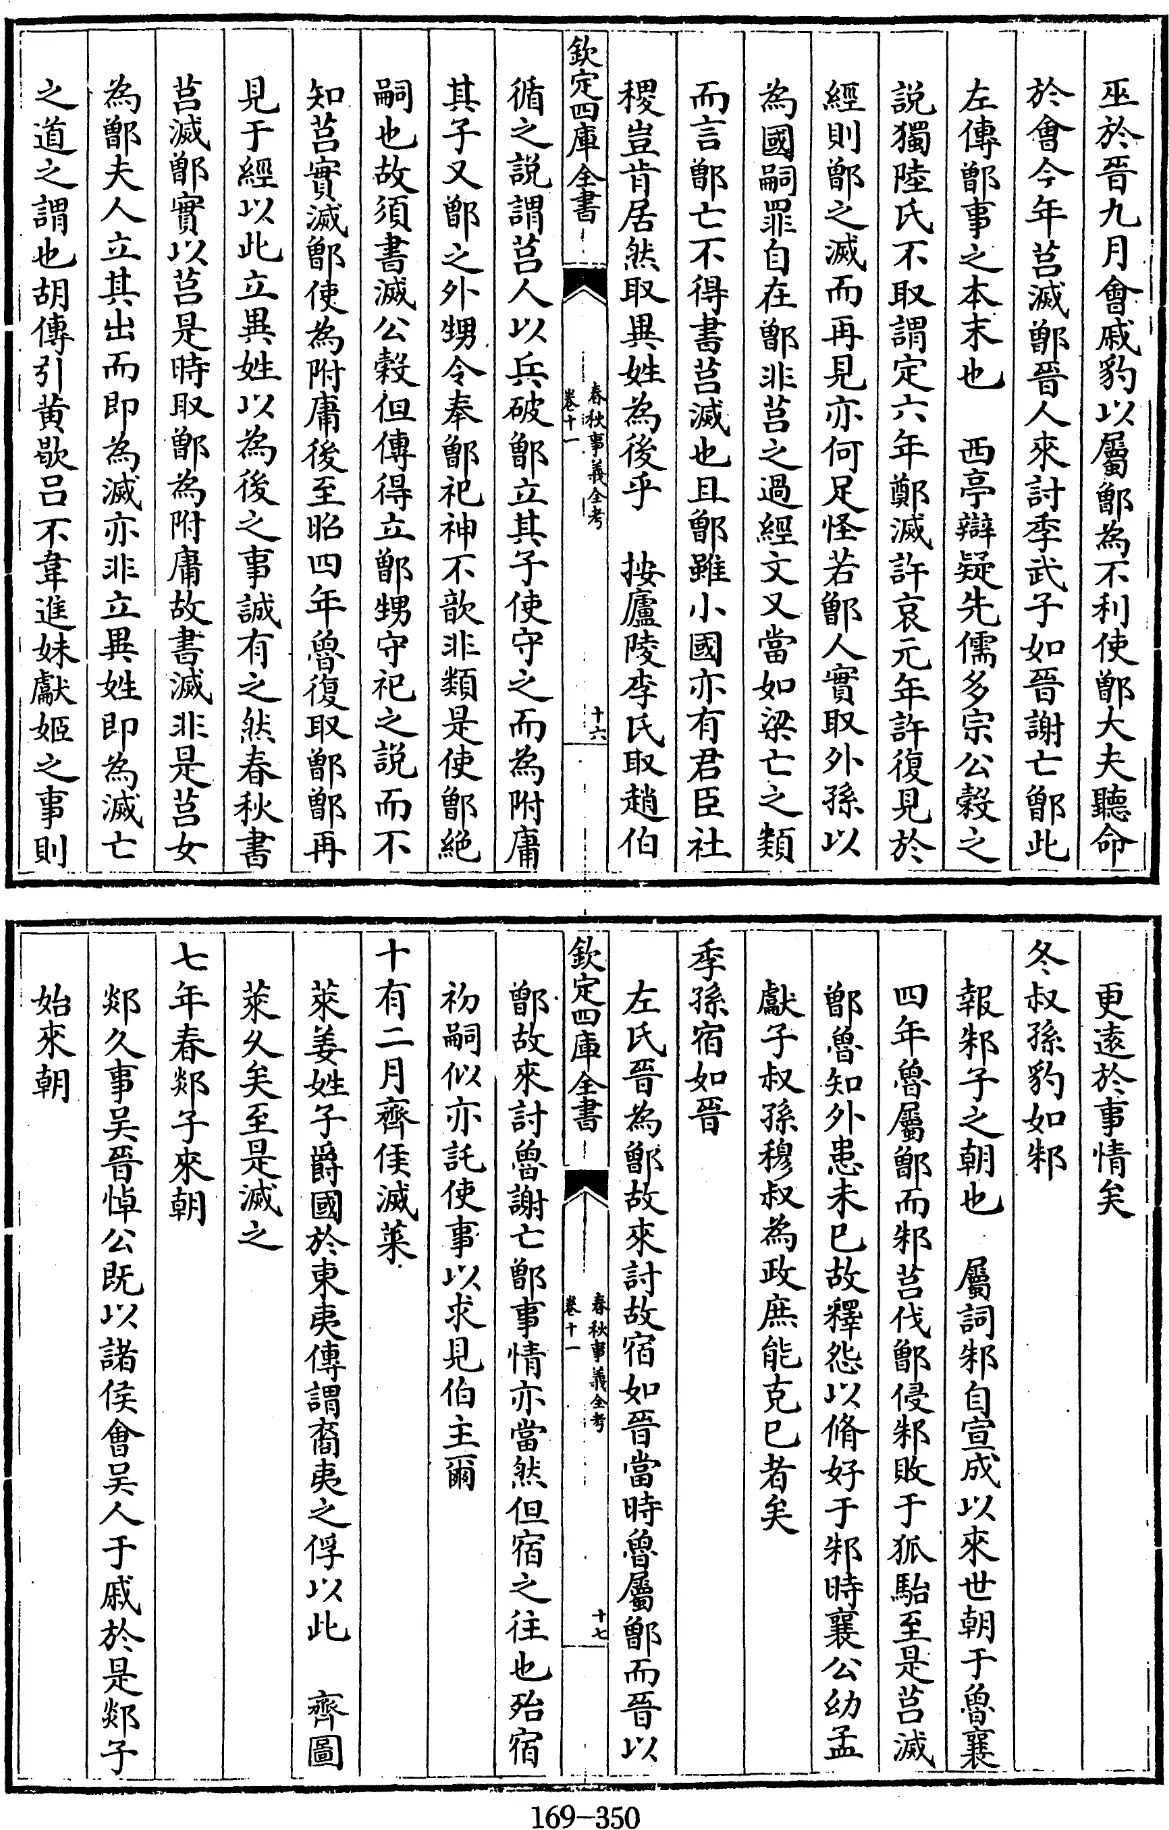 巫於晉九月會戚豹以屬鄫為不利使鄫大夫聽命
於會今年莒滅鄫晉人來討季武子如晉謝亡鄫此
左傳鄫事之本末也　西亭辯疑先儒多宗公穀之
說獨陸氏不取謂定六年鄭滅許哀元年許復見於
經則鄫之滅而再見亦何足怪若鄫人實取外孫以
為國嗣罪自在鄫非莒之過經文又當如梁亡之類
而言鄫亡不得書莒滅也且鄫雖小國亦有君臣社
稷豈肯居然取異姓為後乎　按廬陵李氏取趙伯
欽定四庫全書
春秋事義全考
卷十一
十六
循之說謂莒人以兵破鄫立其子使守之而為附庸
其子又鄫之外甥令奉鄫祀神不歆非類是使鄫絕
嗣也故須書滅公穀但傳得立鄫甥守祀之說而不
知莒實滅鄫使為附庸後至昭四年魯復取鄫鄫再
見于經以此立異姓以為後之事誠有之然春秋書
莒滅鄫實以莒是時取鄫為附庸故書滅非是莒女
為鄫夫人立其出而即為滅亦非立異姓即為滅亡
之道之謂也胡傳引黄歇吕不韋進妹獻姬之事則
更遠於事情矣
冬叔孫豹如邾
報邾子之朝也　屬詞邾自宣成以來世朝于魯襄
四年魯屬鄫而邾莒伐鄫侵邾敗于狐駘至是莒滅
鄫魯知外患未已故釋怨以脩好于邾時襄公幼孟
獻子叔孫穆叔為政庶能克已者矣
季孫宿如晉
左氏晉為鄫故來討故宿如晉當時魯屬鄫而晉以
欽定四庫全書
春秋事義全考
卷十一
十七
鄫故來討魯謝亡鄫事情亦當然但宿之往也殆宿
初嗣似亦託使事以求見伯主爾
十有二月齊侯滅萊
萊姜姓子爵國於東夷傳謂裔夷之俘以此　齊圖
萊久矣至是滅之
七年春郯子來朝
郯久事吴晉悼公既以諸侯會吴人于戚於是郯子
始來朝
169-350